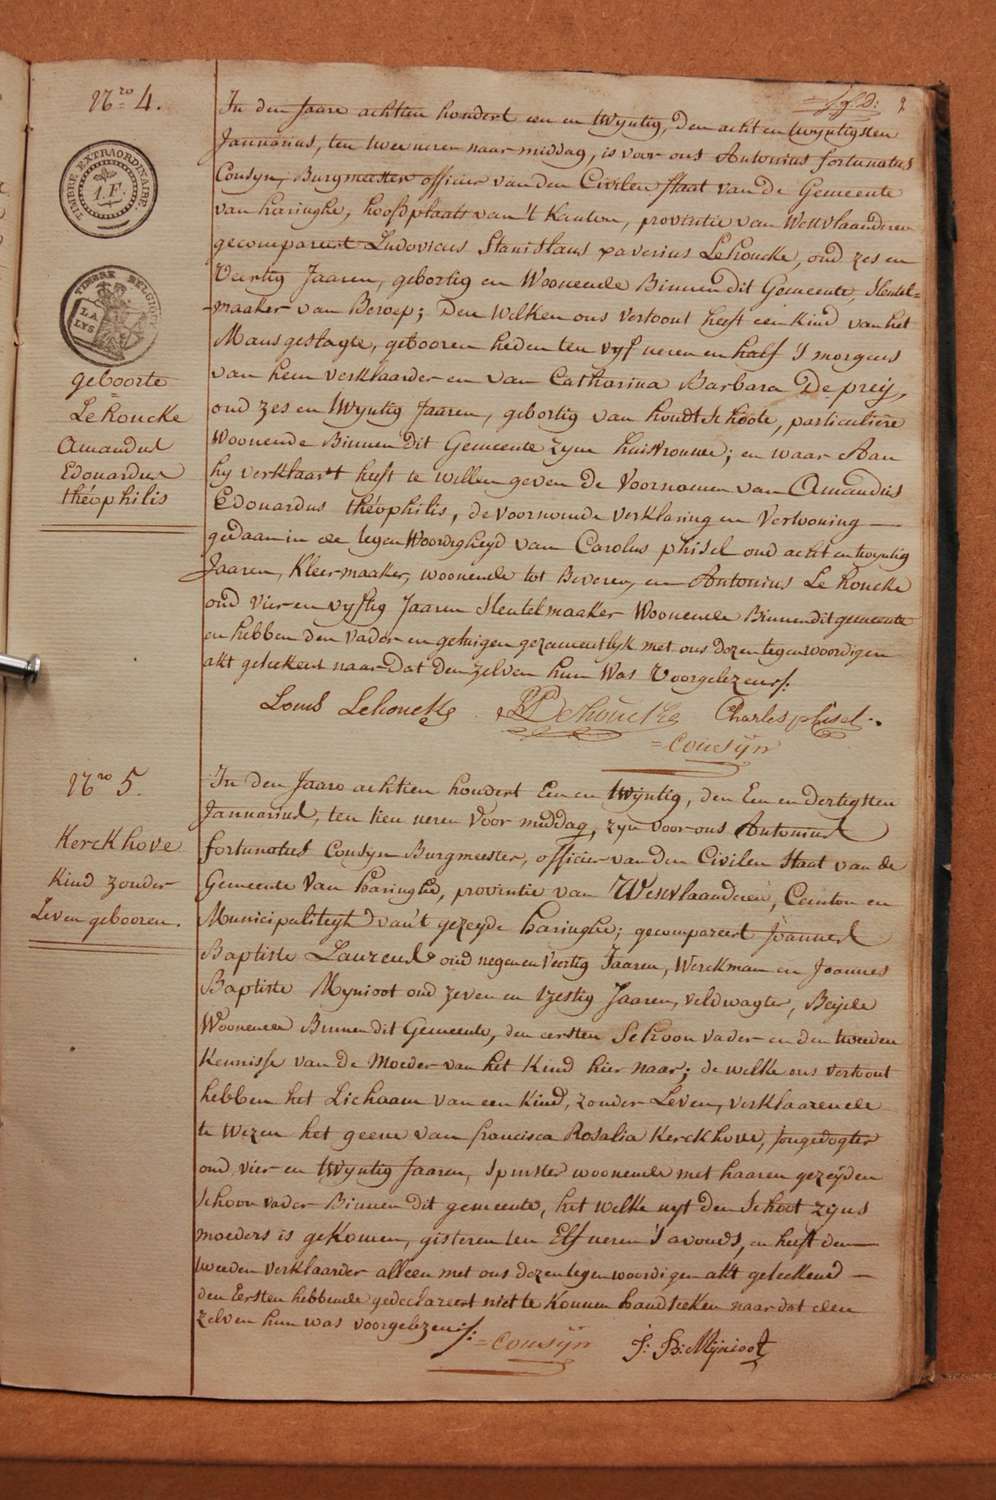 Nro 4.
TIMBRE EXTRAORDINAIRE.
1.F.
TIMBRE BELGIQUE
LA LYS
geboorte
Lehoucke
Amandus
Edouardus
théophilis
2
In den Jaare achttien hondert een en twyntig, den acht en twyntigsten
Januarius, ten twee ueren naar middag, is voor ons Antonius fortunatus
Cousyn, Burgmeester officier van den Civilen staat van de Gemeente
van haringhe, hoofdplaats van 't Kanton, provintie van Westvlaanderen
gecompareert Ludovicus Stanislaus xaverius Lehoucke, oud zes en
Veertig Jaaren, gebortig en Woonende Binnen dit Gemeente, sleutel=
-maaker van Beroep; Den welken ons vertoont heeft een kind van het
Mans geslagte, gebooren heden ten vyf ueren en half 's morgens
van hem verklaarder en van Catharina Barbara De preÿ,
oud zes en twyntig Jaaren, gebortig van houdtschoote, particuliere
Woonende Binnen Dit Gemeente zyne huisvrouwe; en waar Aan
hy verklaart heeft te willen geven de Voornamen van Amandus
Edouardus théophilis, de voornoemde verklaring en Vertooning
gedaan in de tegenwoordigheyd van Carolus phisel oud acht en twyntig
Jaaren, Kleermaaker, woonende tot Beveren, en Antonius Le houcke
oud vier en vyftig Jaaren sleutelmaaker Woonende Binnen dit gemeente
en hebben den vader en getuigen gezamentlyk met ons dezen tegenwoordigen
akt geteekent naar Dat den zelven hun Was Voorgelezen
Louis Lehoucke Lehoucke Charles phisel
=cousÿn
Nro 5.
Kerckhove
Kind zonder
Leven gebooren.
In den Jaare achttien hondert Een en twyntig, den Een en dertigsten
Januarius, ten tien ueren voor middag, zyn voor ons Antonius
fortunatus Cousyn Burgmeester, officier van den Civilen staat van de
Gemeente van haringhe, provintie van Westvlaanderen, Canton en
Municipaliteyt van't gezeyde haringhe; gecompareert Joannes
Baptiste Lauzens oud negen en veertig Jaaren, Werckman en Joannes
Baptiste Mynioot oud zeven en tzestig Jaaren, veldwagter, Beijde
Woonende Binnen dit Gemeente, den eersten schoon vader en den tweeden
Kennisse van de Moeder van het Kind hier naar; de welke ons vertoont
hebben het Lichaam van een Kind, zonder Leven, verklaarende
te wezen het geene van francisca Rosalia Kerckhove, Jongedogter
oud vier en twyntig Jaaren, spinster woonende met haaren gezeyden
schoon vader Binnen dit gemeente, het welke uyt den schoot zyns
moeders is gekomen, gisteren ten Elf ueren 's avonds, en heeft den
tweeden verklaarder alleen met ons dezen tegenwoordigen akt geteekend
den Eersten hebbende gedeclareert niet te Konnen handteeken naar dat den
zelven hun was voorgelezen
=cousÿn J: B: Mÿnioot